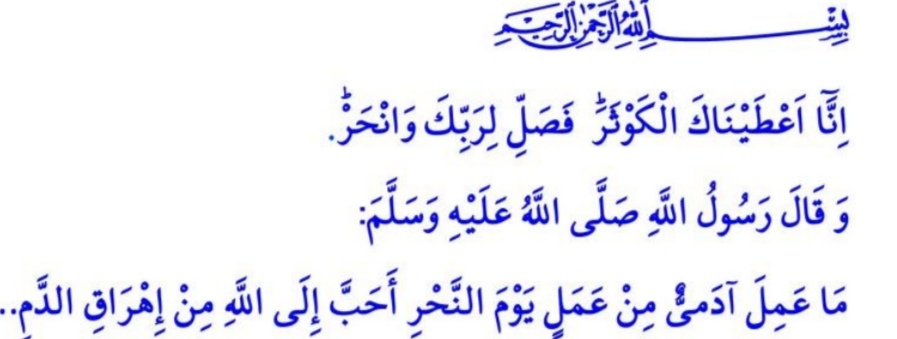 بِسْمِ اللَّهِ الرَّحْمٰنِ الرَّحِيمِ
اِنَّٓا اَعْطَيْنَاكَ الْكَوْثَرَۜ فَصَلِّ لِرَبِّكَ وَانْحَرْۜ.
وَ قَالَ رَسُولُ اللَّهِ صَلَّى اللَّهُ عَلَيْهِ وَسَلَّمَ:
مَا عَمِلَ آدَمىٌّ مِنْ عَمَلٍ يَوْمَ النَّحْرِ أَحَبَّ إِلَى اللَّهِ مِنْ إِهْرَاقِ الدَّمِ..